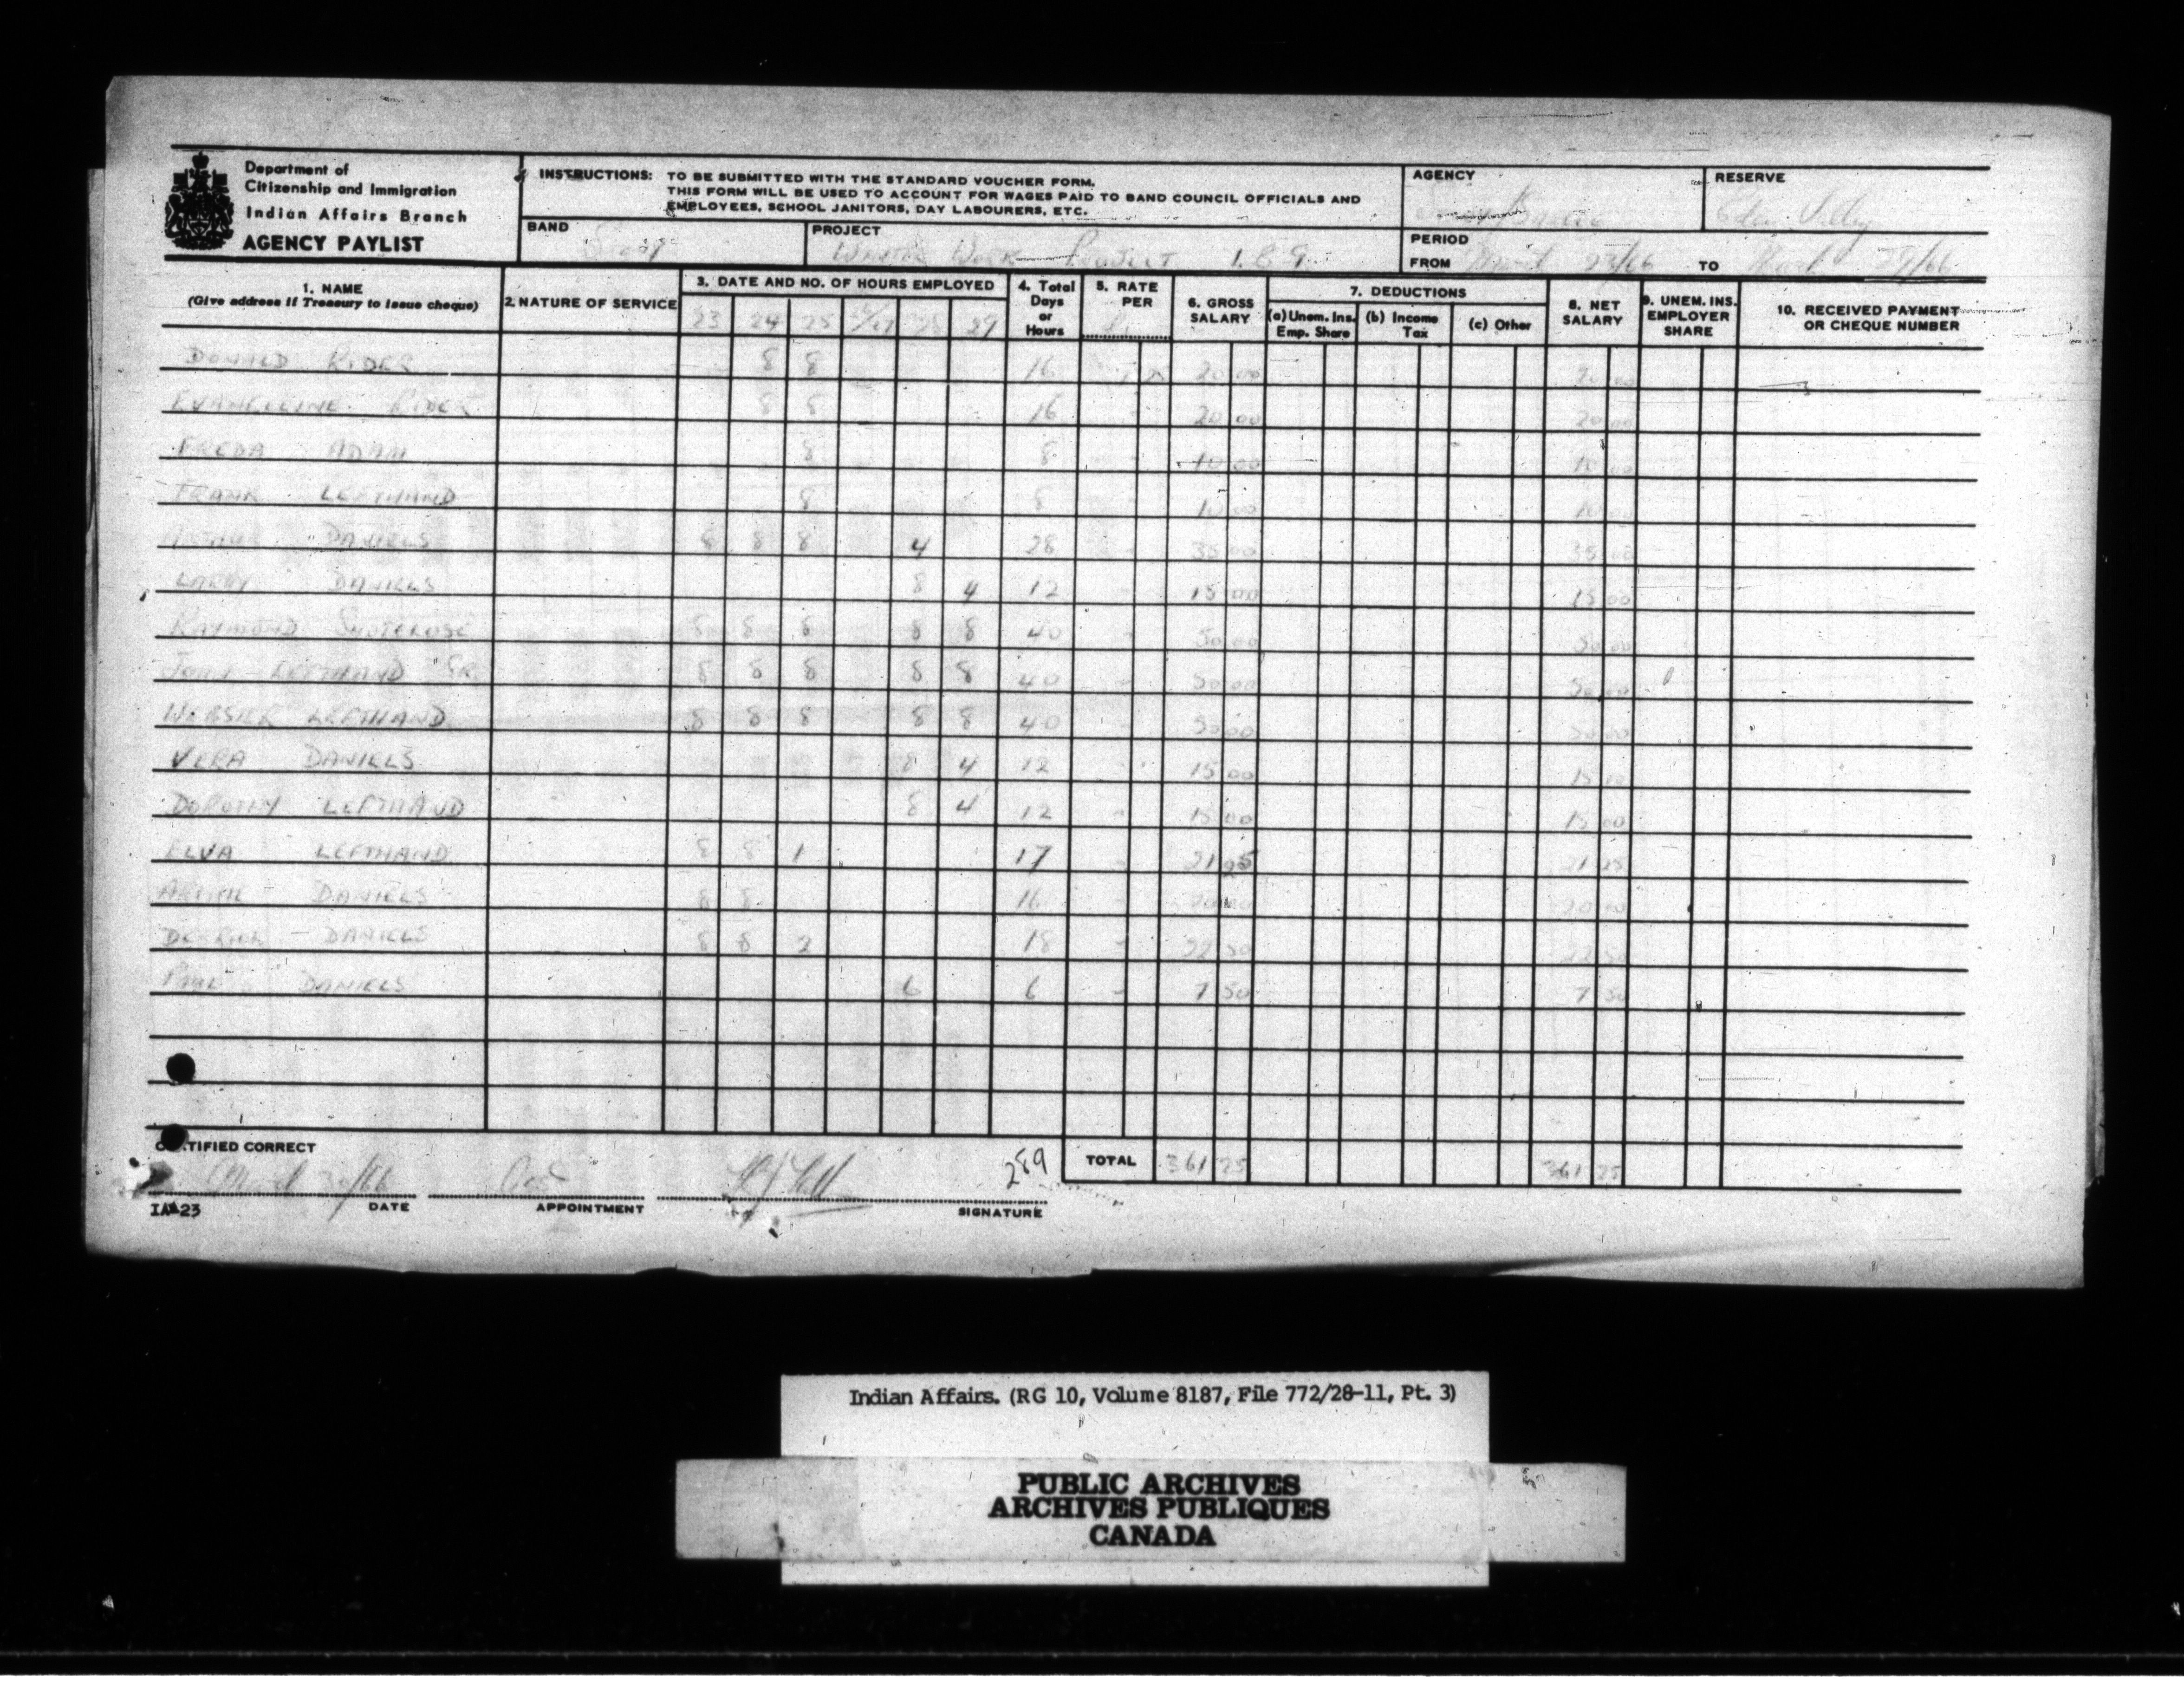 Department of
Citizenship and Immigration
Indian Affairs Branch
AGENCY PAYLIST
INSTRUCTIONS: TO BE SUBMITTED WITH THE STANDARD VOUCHER FORM.
THIS FORM WILL BE USED TO ACCOUNT FOR WAGES PAID TO BAND COUNCIL OFFICIALS AND
EMPLOYEES, SCHOOL JANITORS, DAY LABOURERS, ETC.
AGENCY
RESERVE Eden Valley
BAND Stony
PROJECT WINTER WORK PROJECT
PERIOD
FROM March 23/66 TO March 29/66
1. NAME
(Give address if Treasury to issue cheque)
2. NATURE OF SERVICE
3. DATE AND NO. OF HOURS EMPLOYED
23 24 25 26/27 28 29
4. Total
Days
or
Hours
5. RATE
PER
6. GROSS
SALARY
7. DEDUCTIONS
(a) Unem. Ins.
Emp. Share
(b) Income
Tax
(c) Other
8. NET
SALARY
9. UNEM. INS.
EMPLOYER
SHARE
10. RECEIVED PAYMENT
OR CHEQUE NUMBER
DONALD RIDER 8 8 16 1 25 20 00 20 00
EVANGELINE RIDER 8 8 16 20 00 20 00
FREDA ADAM 8 8 10 00 10 00
FRANK LEFTHAND 8 8 10 00 10 00
DANIELS 8 8 8 4 28 35 00 35 00
LARRY DANIELS 8 4 12 15 00 15 00
RAYMOND SHOTCLOSE 8 8 8 8 8 40 50 00 50 00
JOHN LEFTHAND SR. 8 8 8 8 8 40 50 00 50 00
WEBSTER LEFTHAND 8 8 8 8 8 40 50 00 50 00
VERA DANIELS 8 4 12 15 00 15 00
DOROTHY LEFTHAND 8 4 12 15 00 15 00
ELVA LEFTHAND 8 8 1 17 21 25 21 25
DANIELS 8 8 16 20 00 20 00
DANIELS 8 8 2 18 22 50 22 50
PAUL DANIELS 6 6 7 50 7 50
CERTIFIED CORRECT
March 30/66
289
TOTAL 361 25 361 25
IA-23 DATE APPOINTMENT SIGNATURE
Indian Affairs. (RG 10, Volume 8187, File 772/28-11, Pt. 3)
PUBLIC ARCHIVES
ARCHIVES PUBLIQUES
CANADA